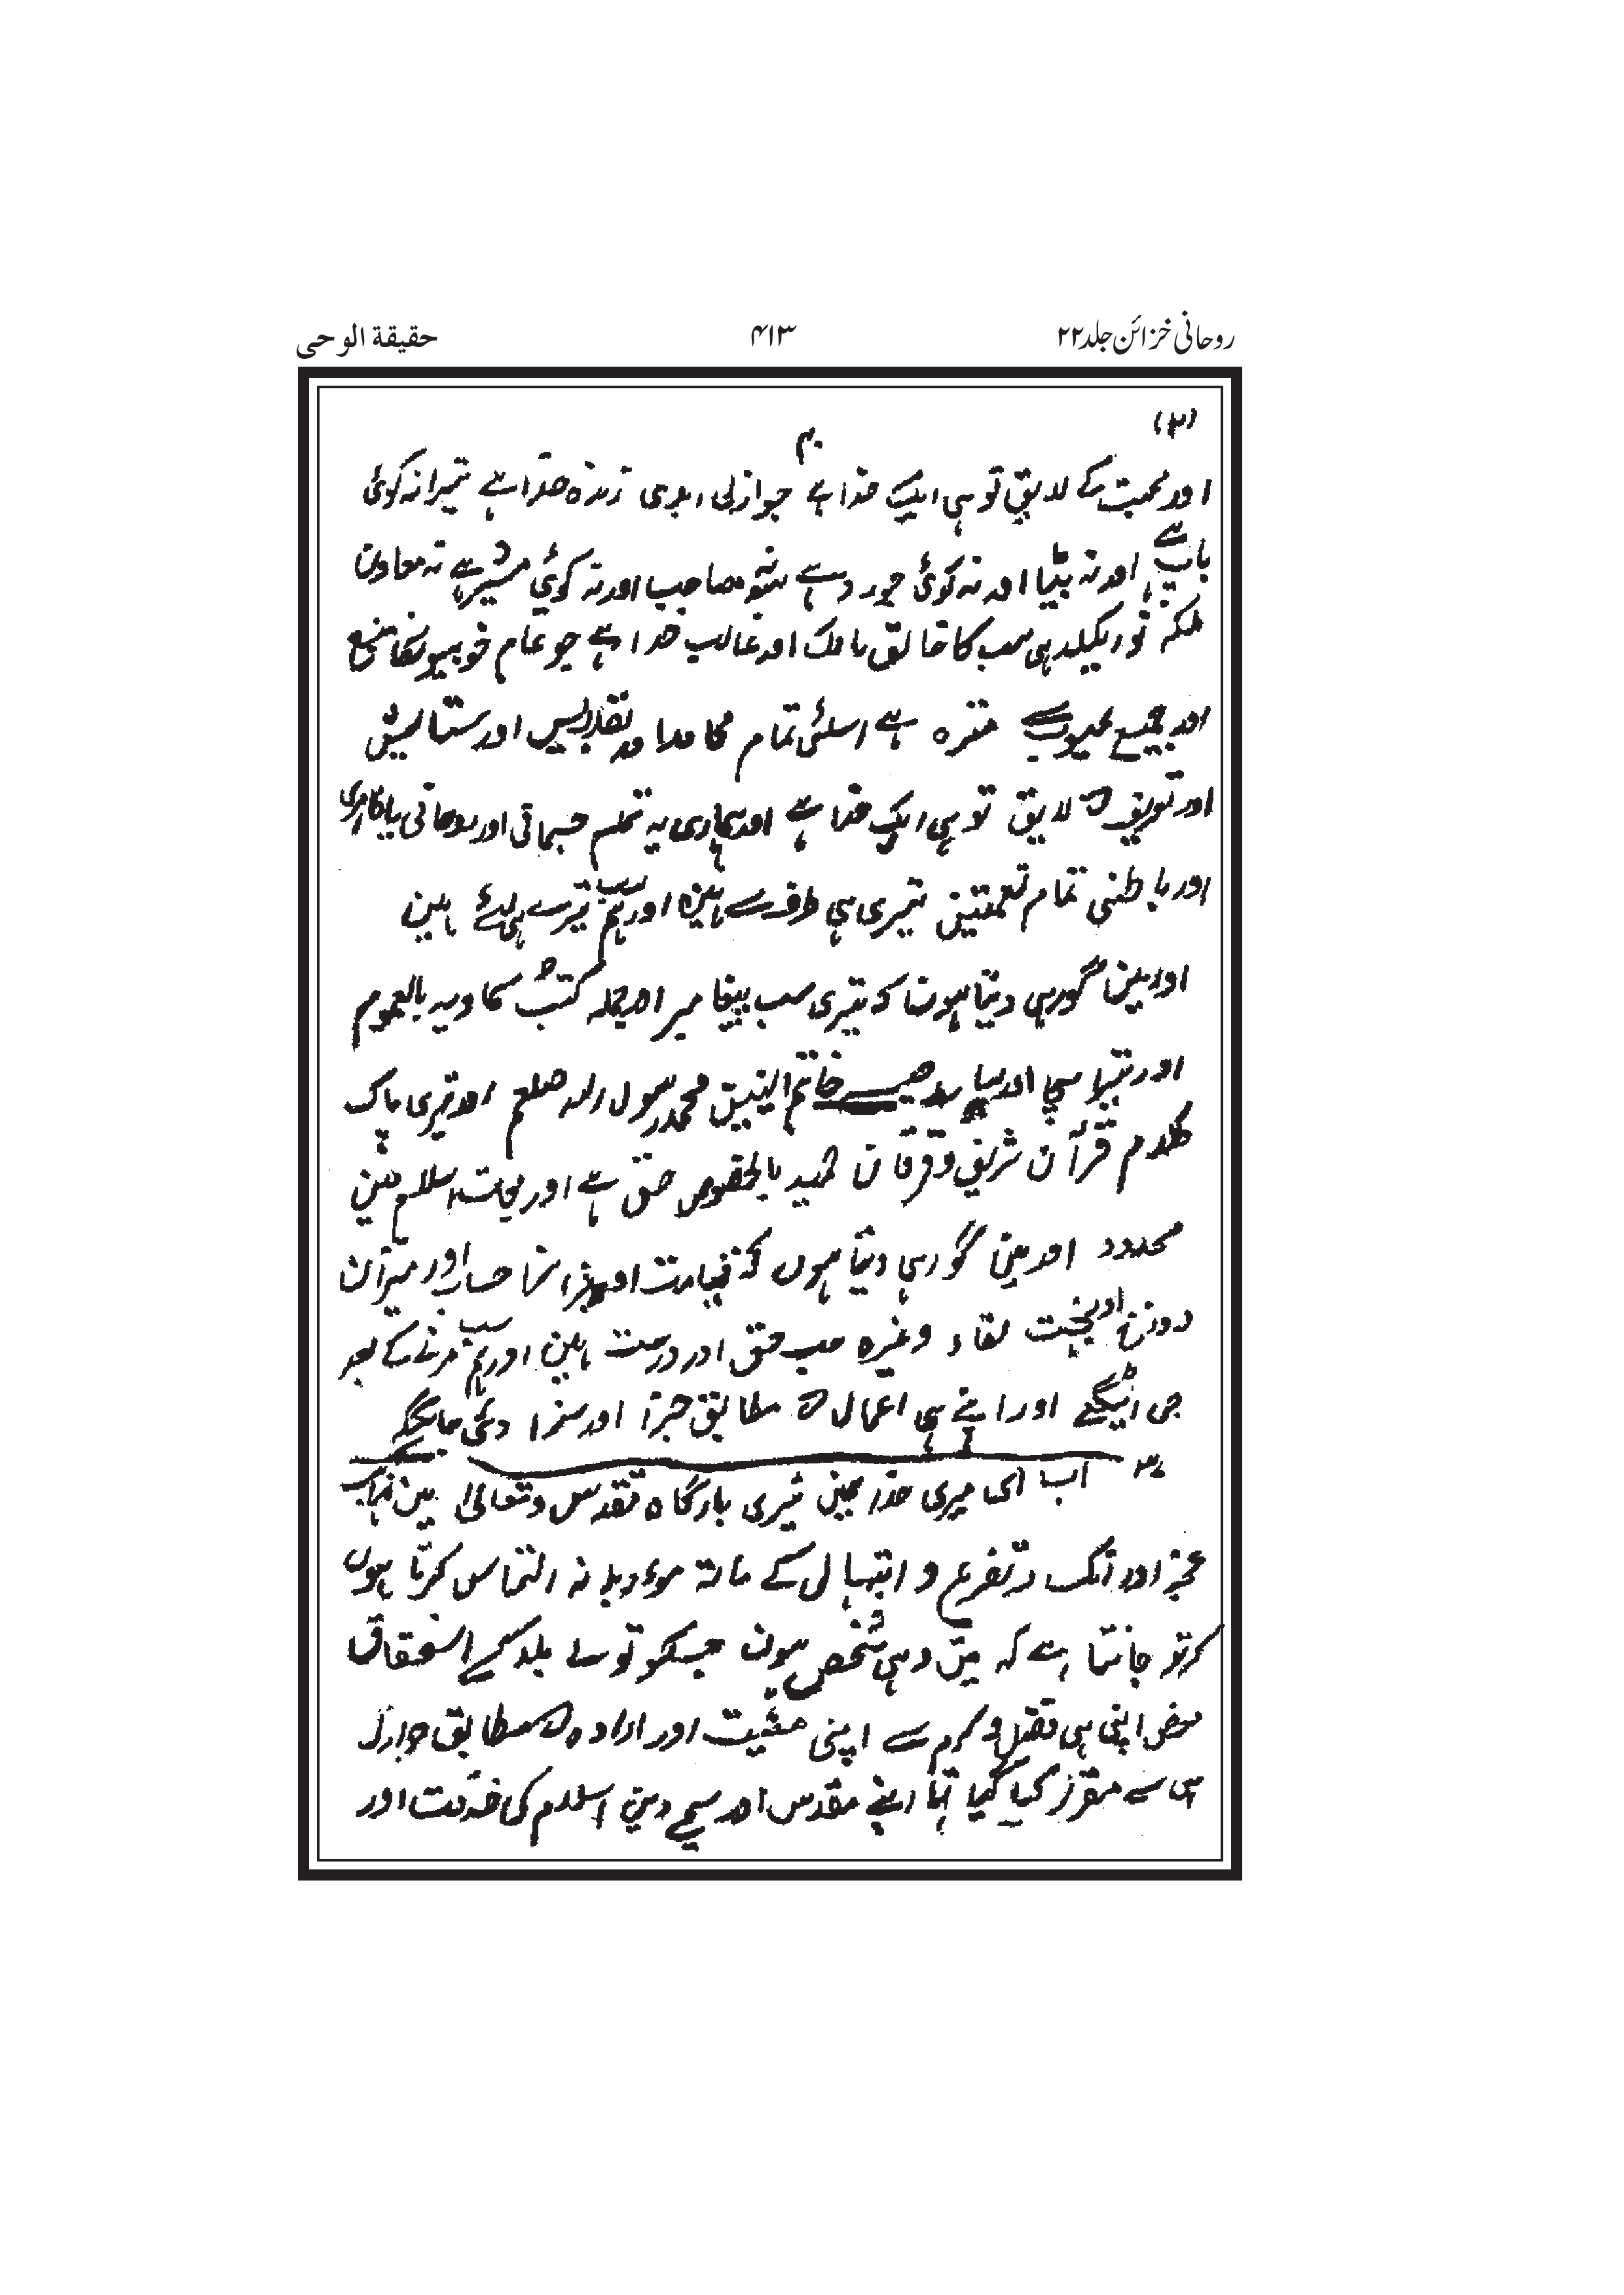 روحانی خزائن جلد۲۲
۴۱۳
حقیقة الوحی
(۲)
اور محبت کے لایق تو ہی ایک خدا ہے جو ازلی ابدی زندہ خدا ہے تیرا نہ کوئی
باپ ہے اور نہ بیٹا اور نہ کوئی جورو ہے نہ مصاحب اور نہ کوئی مشیر ہے نہ معاون
بلکہ تو اکیلا ہی سب کا خالق مالک اور غالب خدا ہے جو تمام خوبیونکا منبع
اور جمیع عیوب سے منزہ ہے اسلئی تمام محامد اور تقدیس اور ستایش
اور تعریف کے لایق تو ہی ایک خدا ہے اور ہماری یہ تمام جسمانی اور روحانی یا ظاہری
اور باطنی تمام نعمتین تیری ہی طرف سے ہین اور ہم سب تیرے ہی لئے ہین
اور مین گواہی دیتا ہون کہ تیری سب پیغامبر اور جملہ کتب سماویہ بالعموم
اور تیرا سچا اور پیارا حبیب خاتم النبیین محمد رسول اللہ صلعم اور تیری پاک
کلام قرآن شریف و فرقان حمید بالخصوص حق ہے اور نجات اسلام مین
محدود اور مین گواہی دیتا ہوں کہ قیامت اور جزا سزا حساب اور میزان
دوزخ اور جنت لقاء وغیرہ سب حق اور درست ہین اور ہم سب مرنے کے بعد
جی اٹہینگے اور اپنے ہی اعمال کے مطابق جزا اور سزا دئی جاینگے
۳ اب ای میری خدا مین تیری بارگاہ تقدس و تعالیٰ مین نہایت
عجز اور انکسار تضرع و ابتہال کے ساتہ مودبانہ التماس کرتا ہوں
کہ تو جانتا ہے کہ مین وہی شخص ہون جسکو تو نے بلا کسی استحقاق
محض اپنی ہی فضل و کرم سے اپنی مشیت اور ارادہ کے مطابق جو ازل
ہی سے مقرر کیا گیا تہا اپنے مقدس اور سچے دین اسلام کی خدمت اور